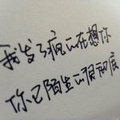 我发了疯以在想你
你已陌生以及彻底